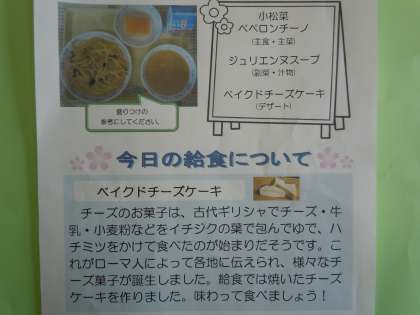 小松菜
ペペロンチーノ
(主食・主菜)
ジュリエンヌスープ
(副菜・汁物)
ベイクドチーズケーキ
(デザート)
盛りつけの
参考にしてください。
今日の給食について
ベイクドチーズケーキ
チーズのお菓子は、古代ギリシャでチーズ・牛
乳・小麦粉などをイチジクの葉で包んでゆで、ハ
チミツをかけて食べたのが始まりだそうです。こ
れがローマ人によって各地に伝えられ、様々なチ
ーズ菓子が誕生しました。給食では焼いたチーズ
ケーキを作りました。味わって食べましょう！